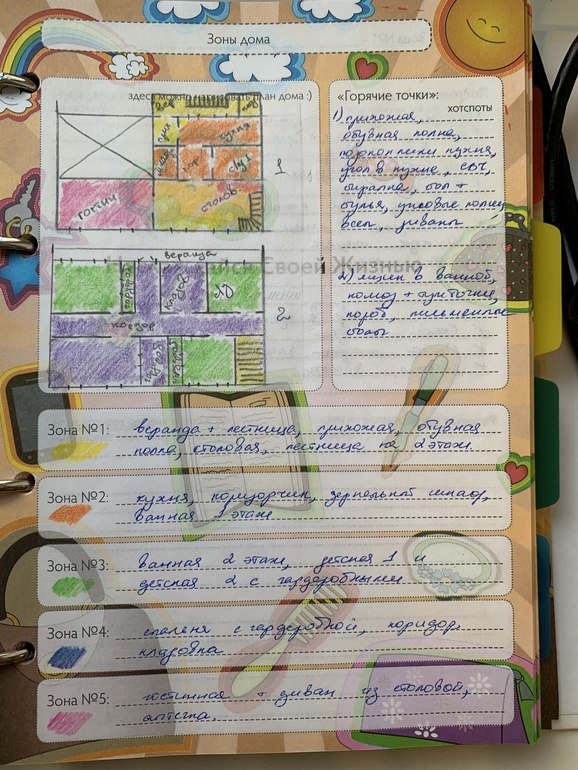 Зоны дома
здесь можно нарисовать план дома :)
«Горячие точки»:
хотспоты
1) прихожая,
обувная полка,
подоконники кухня,
угол в кухне, СВЧ,
стул +
стулья,
диваны
2) ящик в ванной,
комод +
столы
вер
кухня
с/у 1
гостин
столов
1
веранда
коридор
2
Зона №1: веранда + лестница, прихожая, обувная
полка, столовая, лестница на 2 этаж
Зона №2: кухня, коридорчик, зеркальный шкаф,
ванная 1 этаж
Зона №3: ванная 2 этаж, детская 1 и
детская 2 с гардеробными
Зона №4: спальня с гардеробной, коридор,
кладовка
Зона №5: гостинная + диван из столовой,
аптечка.